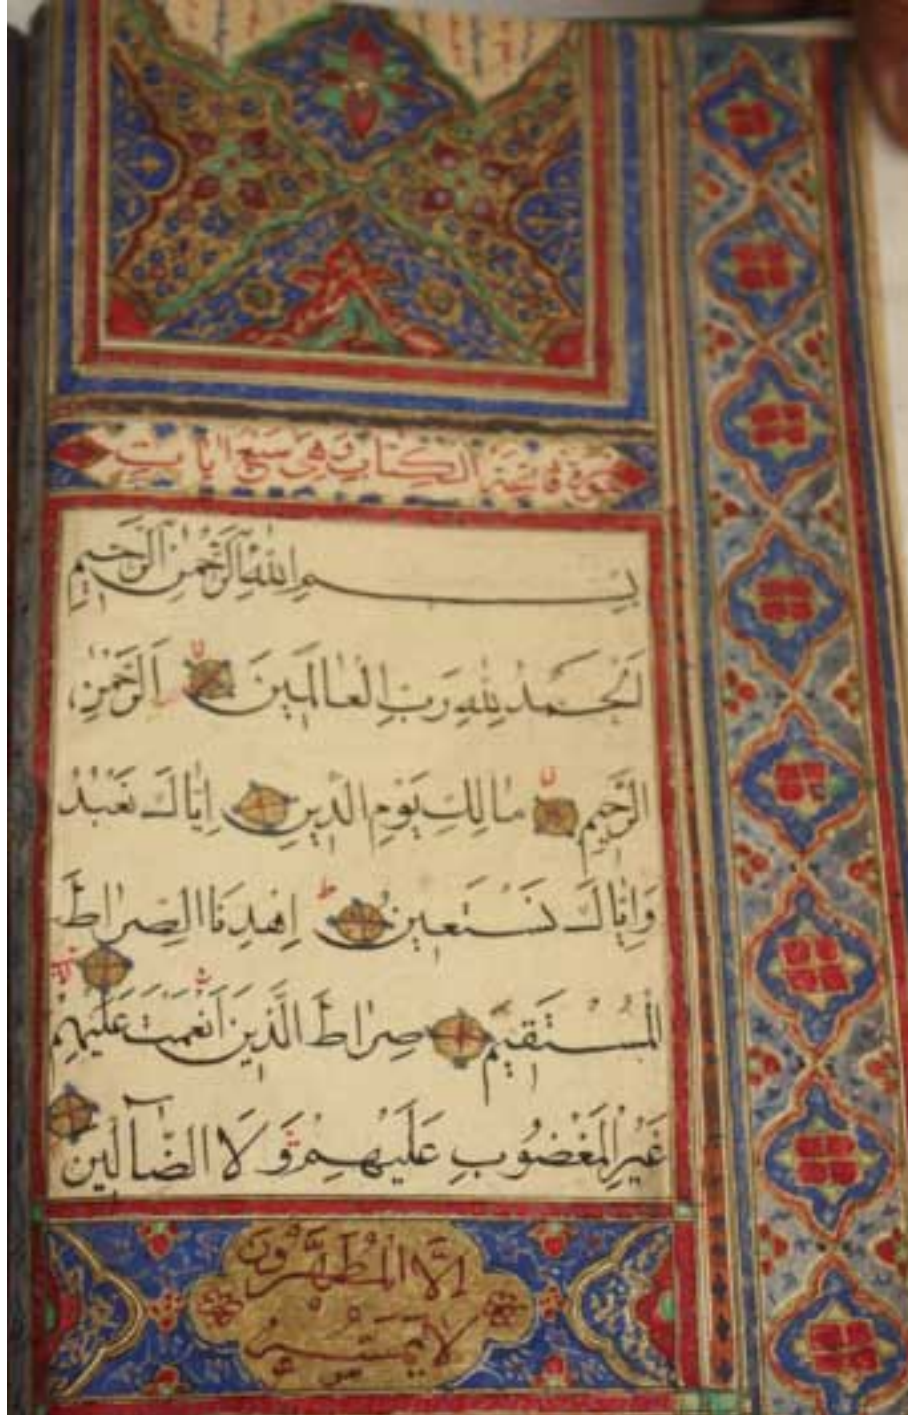 سورة فاتحة الكتاب وهي سبع ايات
بِسْمِ اللهِ الرَّحْمٰنِ الرَّحِيمِ
اَلْحَمْدُ لِلّٰهِ رَبِّ الْعَالَمِينَ اَلرَّحْمٰنِ
الرَّحِيمِ مَالِكِ يَوْمِ الدِّينِ اِيَّاكَ نَعْبُدُ
وَاِيَّاكَ نَسْتَعِينُ اِهْدِنَا الصِّرَاطَ
الْمُسْتَقِيمَ صِرَاطَ الَّذِينَ اَنْعَمْتَ عَلَيْهِمْ
غَيْرِ الْمَغْضُوبِ عَلَيْهِمْ وَلَا الضَّآلِّينَ
اِلَّا الْمُطَهَّرُونَ
لَا يَمَسُّهُ